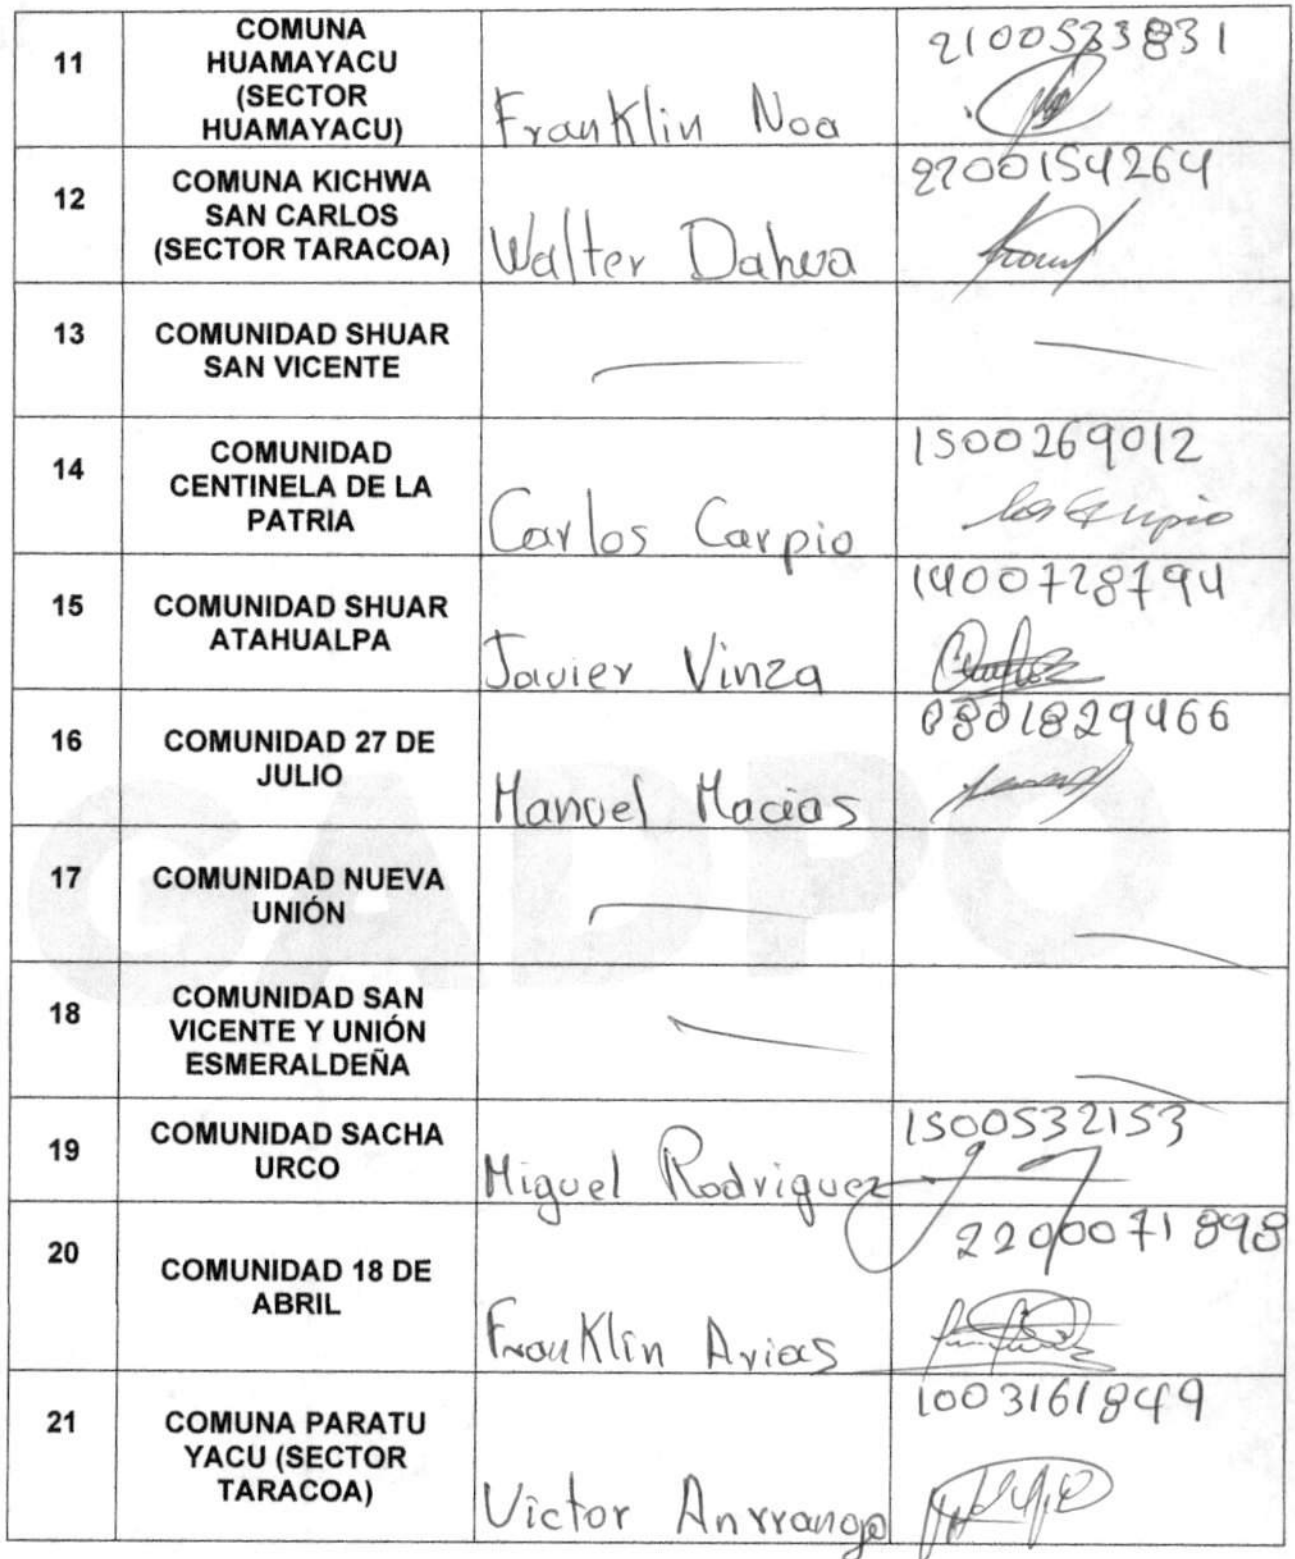 11
COMUNA
HUAMAYACU
(SECTOR
HUAMAYACU)
Franklin Noa
2100533831
12
COMUNA KICHWA
SAN CARLOS
(SECTOR TARACOA)
Walter Dahua
2200154264
13
COMUNIDAD SHUAR
SAN VICENTE
14
COMUNIDAD
CENTINELA DE LA
PATRIA
Carlos Carpio
1500269012
15
COMUNIDAD SHUAR
ATAHUALPA
Javier Vinza
1400728794
16
COMUNIDAD 27 DE
JULIO
Manuel Macias
0801829466
17
COMUNIDAD NUEVA
UNIÓN
18
COMUNIDAD SAN
VICENTE Y UNIÓN
ESMERALDEÑA
19
COMUNIDAD SACHA
URCO
Miguel Rodriguez
1500532153
20
COMUNIDAD 18 DE
ABRIL
Franklin Arias
2200071898
21
COMUNA PARATU
YACU (SECTOR
TARACOA)
Victor Anrrango
1003161849
GADPO